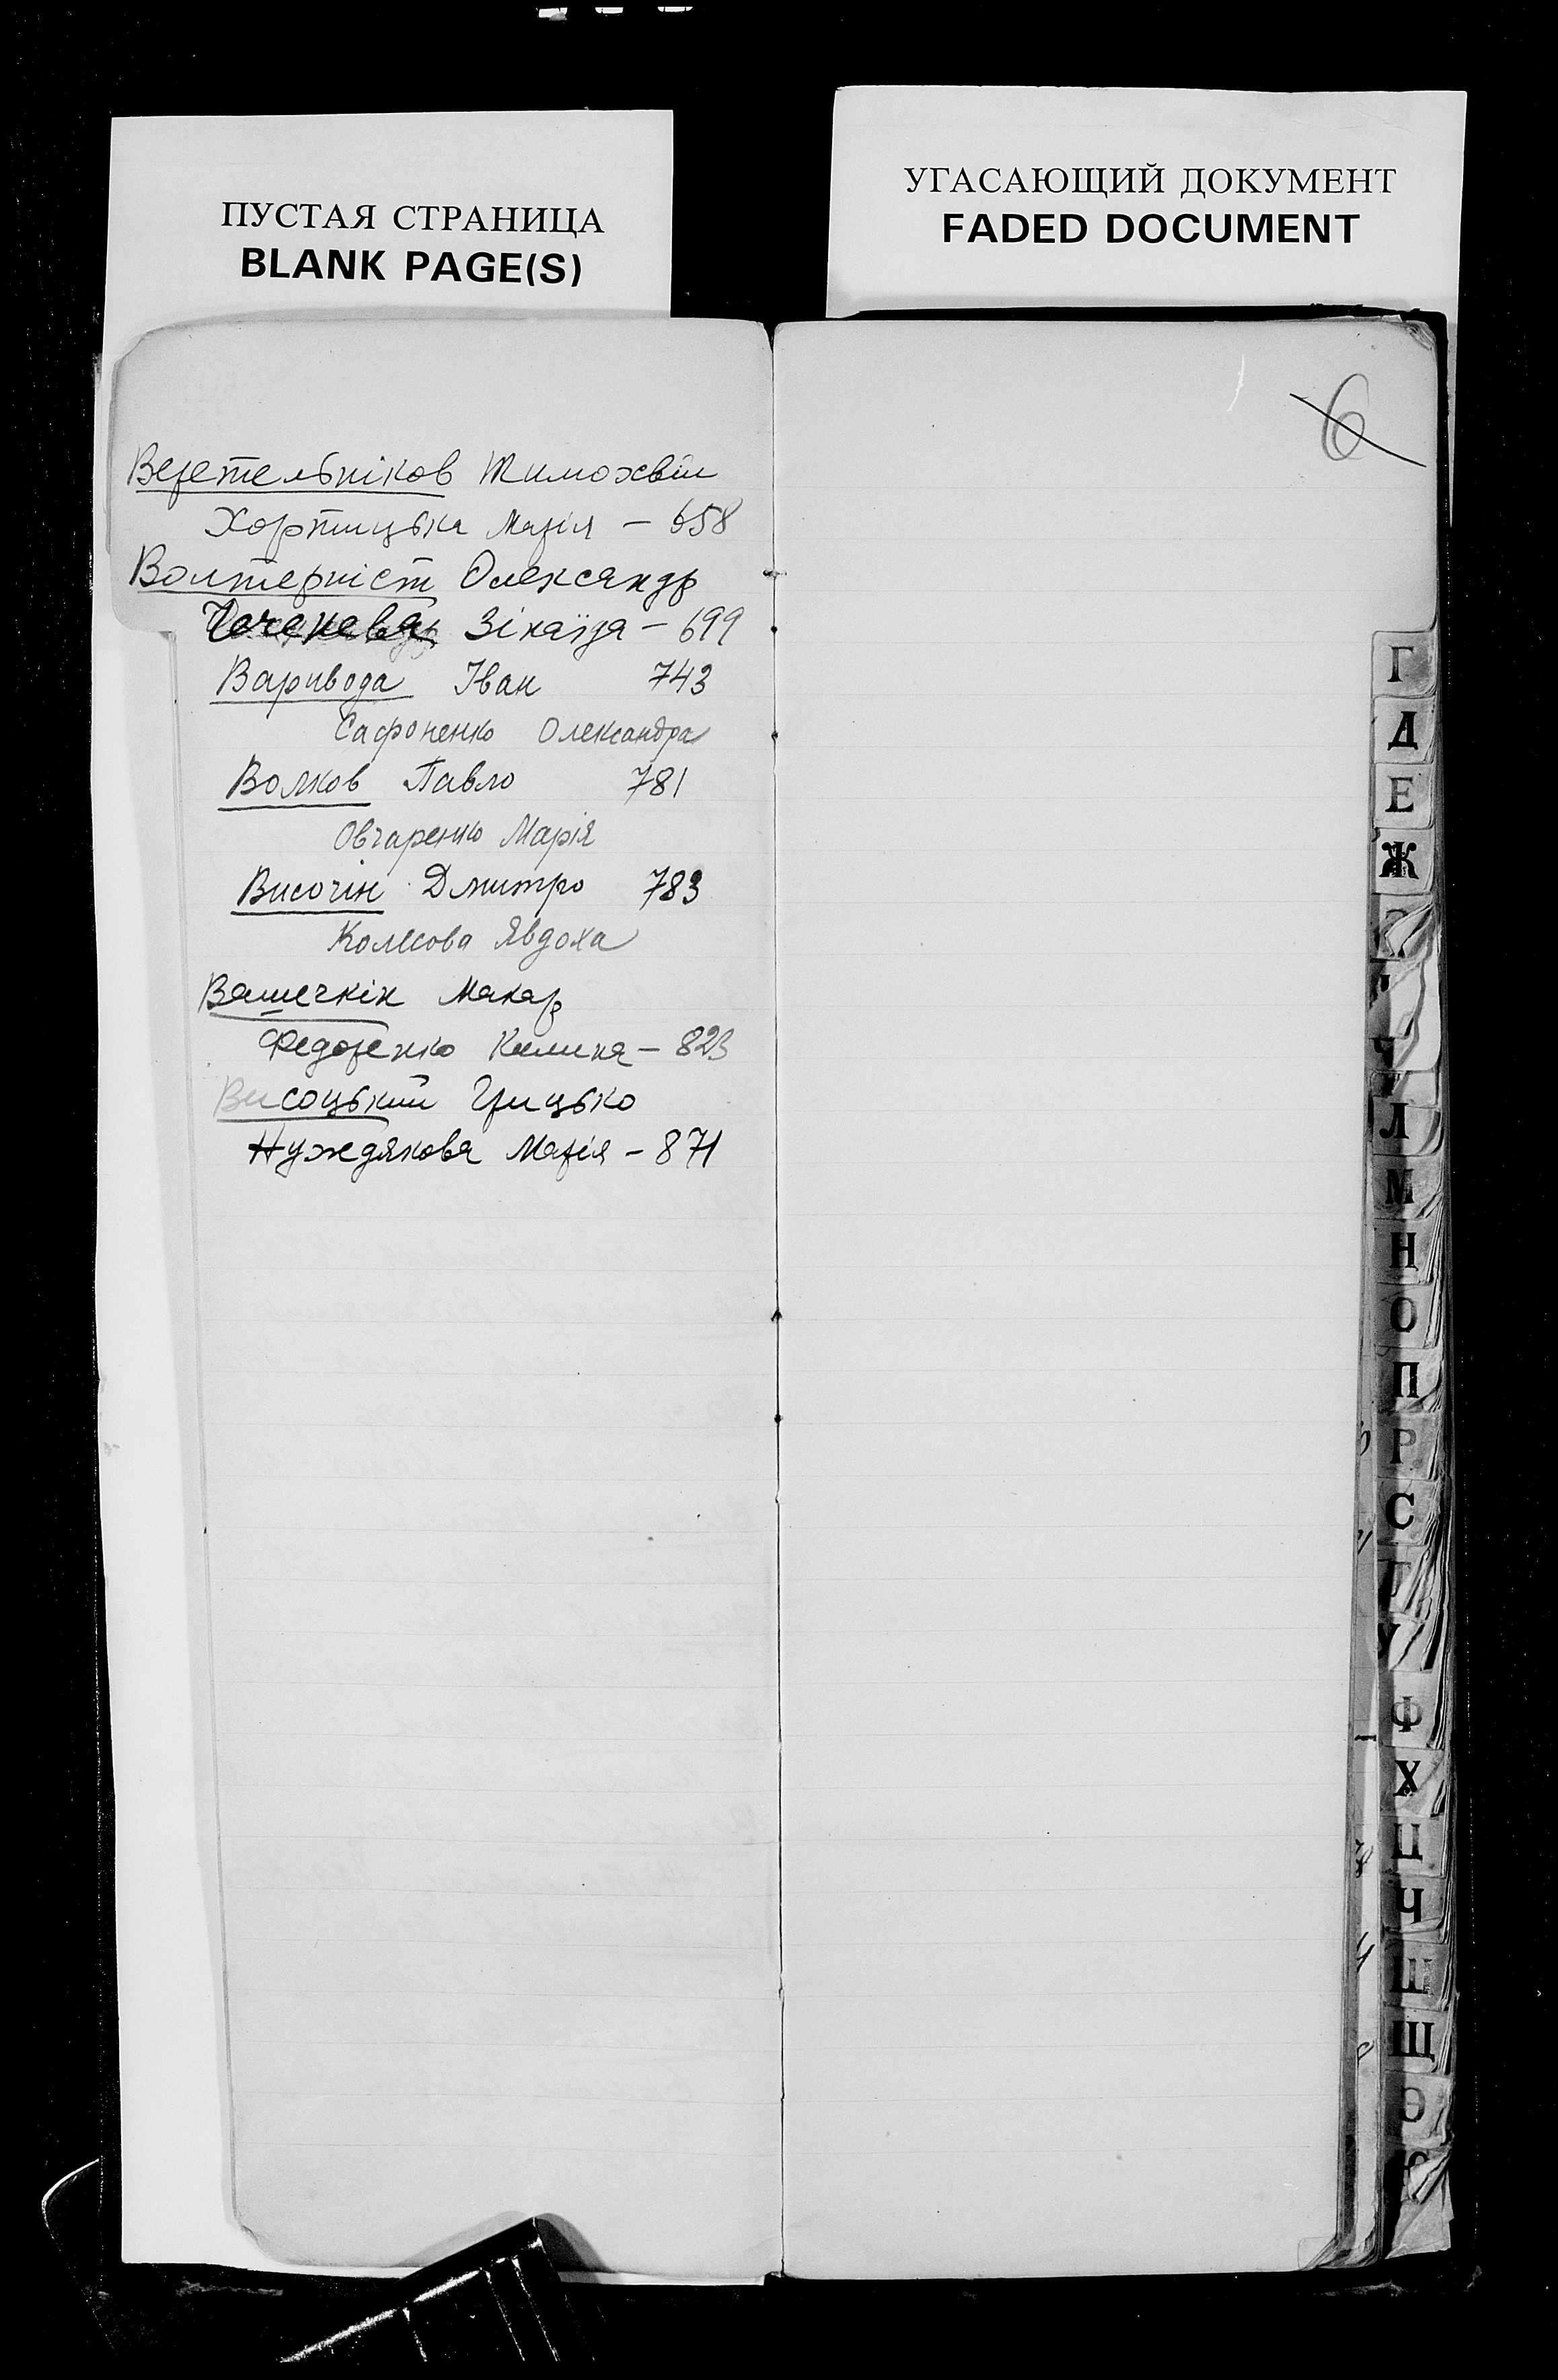 ПУСТАЯ СТРАНИЦА
BLANK PAGE(S)
УГАСАЮЩИЙ ДОКУМЕНТ
FADED DOCUMENT
6
Веретельніков Тимохвій
Хортицька Марія – 658
Волтерніст Олександр
Зінаїда – 699
Варивода Іван 743
Сафоненко Олександра
Волков Павло 781
Овчаренко Марія
Височін Дмитро 783
Колесова Явдоха
Вашечкін Макар
Федоренко Килина – 823
Височький Грицько
Нуждякова Марія – 871
Г
Д
Е
Ж
Л
М
Н
О
П
Р
С
Т
У
Ф
Х
Ц
Ч
Ш
Щ
Э
Ю